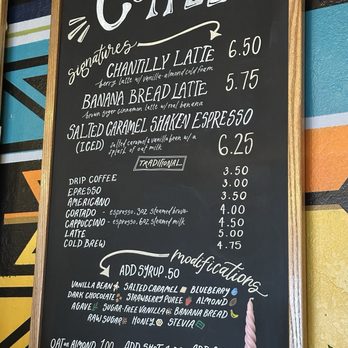 COFFEE
signatures
CHANTILLY LATTE 6.50
latte w/ vanilla-almond cold foam
BANANA BREAD LATTE 5.75
brown sugar cinnamon latte w/ real banana
SALTED CARAMEL SHAKEN ESPRESSO
(ICED) salted caramel & vanilla bean w/ a 6.25
splash of oat milk
TRADITIONAL
DRIP COFFEE 3.50
EPRESSO 3.00
AMERICANO 3.50
CORTADO - espresso, 3oz steamed 4.00
CAPPUCCINO - espresso, 6oz steamed milk 4.50
LATTE 5.00
COLD BREW 4.75
modifications
ADD SYRUP .50
VANILLA BEAN SALTED CARAMEL BLUEBERRY
DARK CHOCOLATE STRAWBERRY PUREE ALMOND
AGAVE SUGAR-FREE VANILLA BANANA BREAD
RAW SUGAR HONEY STEVIA
OAT or ALMOND 1.00 ADD SHOT